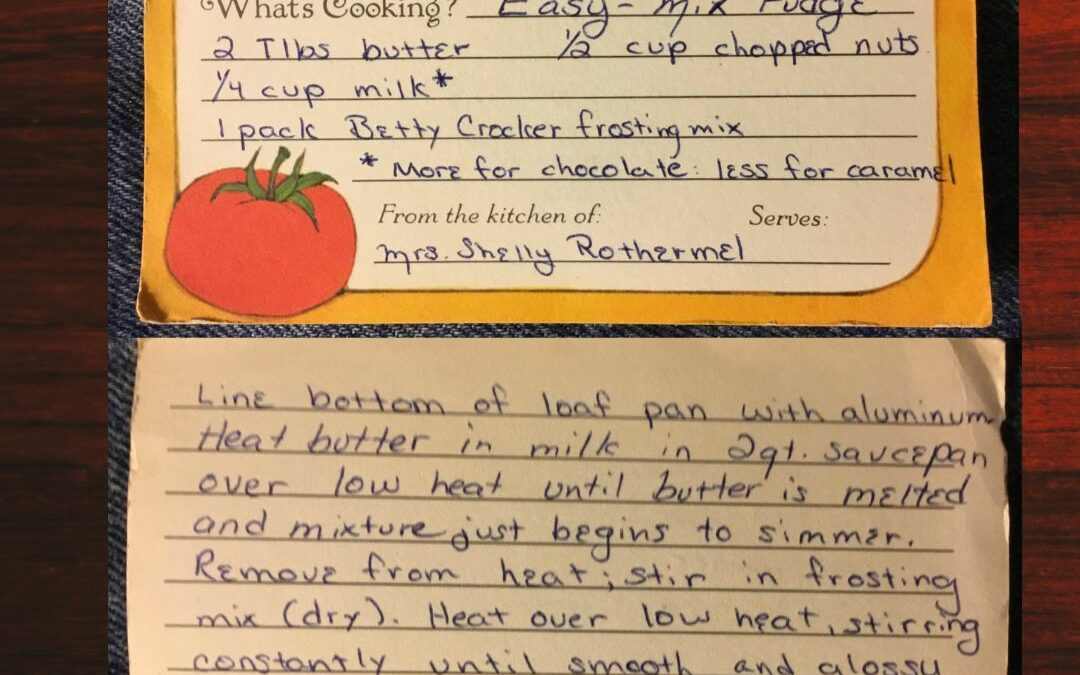 Whats Cooking? Easy-Mix Fudge
2 Tlbs butter ½ cup chopped nuts
¼ cup milk*
1 pack Betty Crocker frosting mix
* More for chocolate: less for caramel
From the kitchen of: Serves:
Mrs. Shelly Rothermel
Line bottom of loaf pan with aluminum
Heat butter in milk in 2qt. saucepan
over low heat until butter is melted
and mixture just begins to simmer.
Remove from heat; stir in frosting
mix (dry). Heat over low heat, stirring
constantly until smooth and glossy